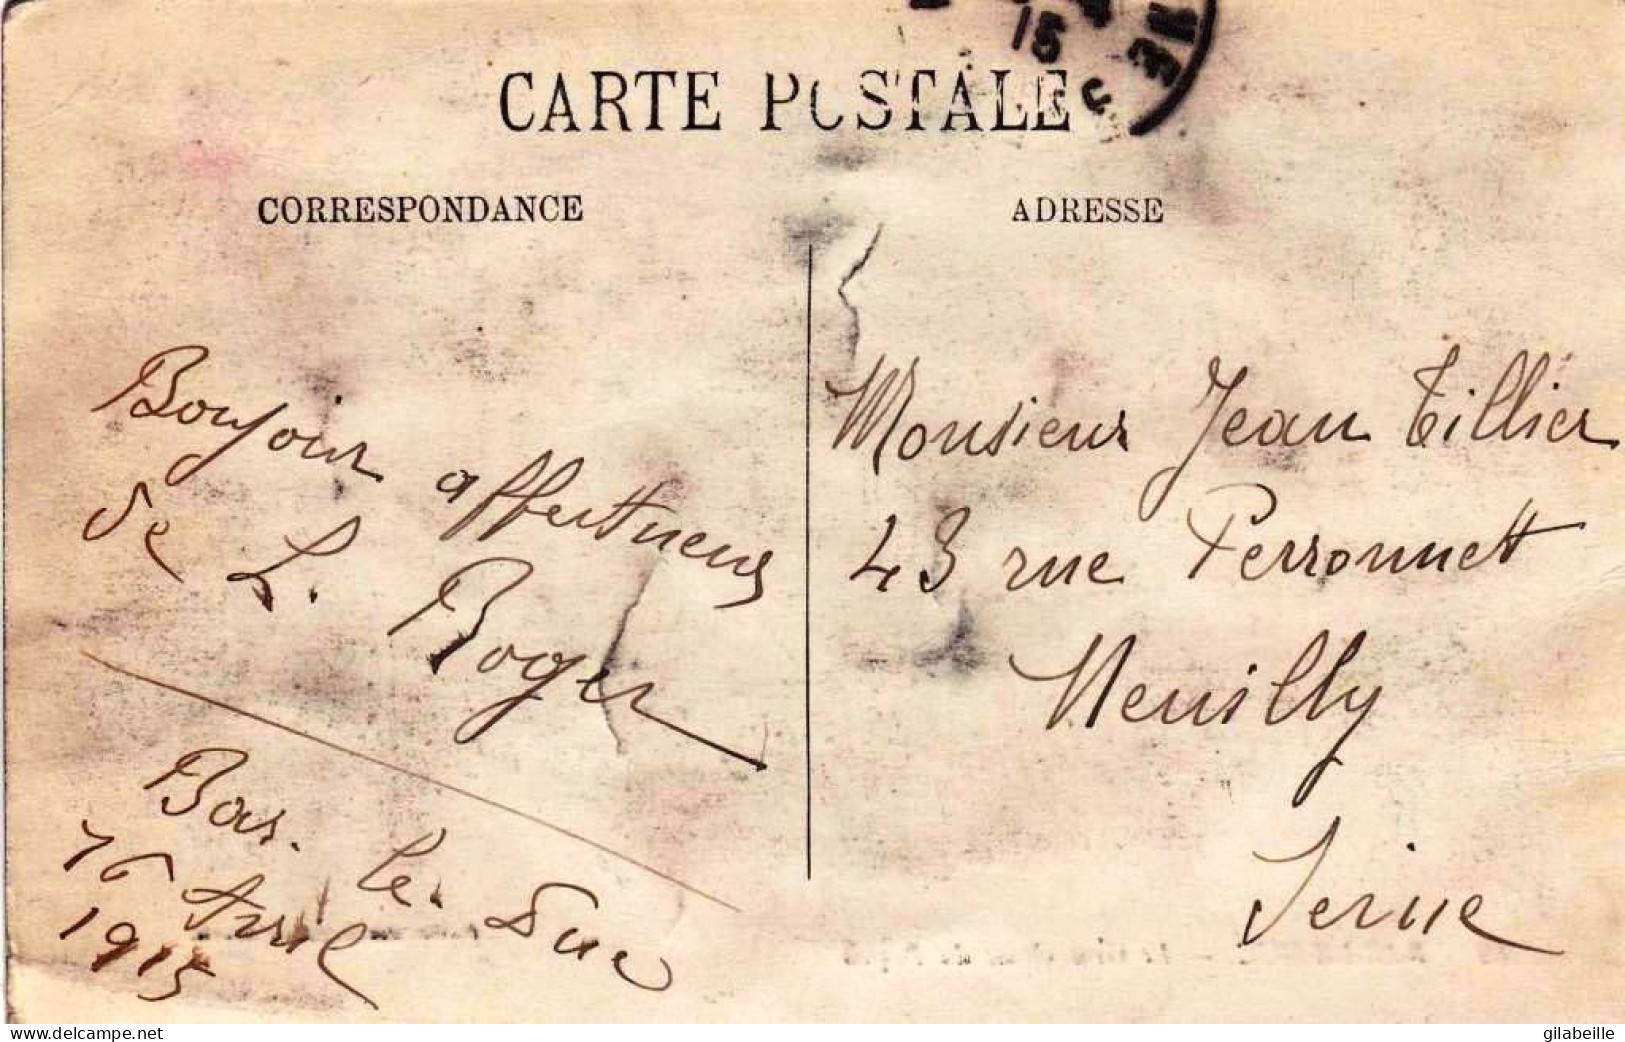 CARTE POSTALE
CORRESPONDANCE
ADRESSE
Bonjour affectueux
de L. Roger
Bar. le. Duc
16 Avril
1915
Monsieur Jean Tillier
43 rue Perronnet
Neuilly
Seine
15
www.delcampe.net
gilabeille